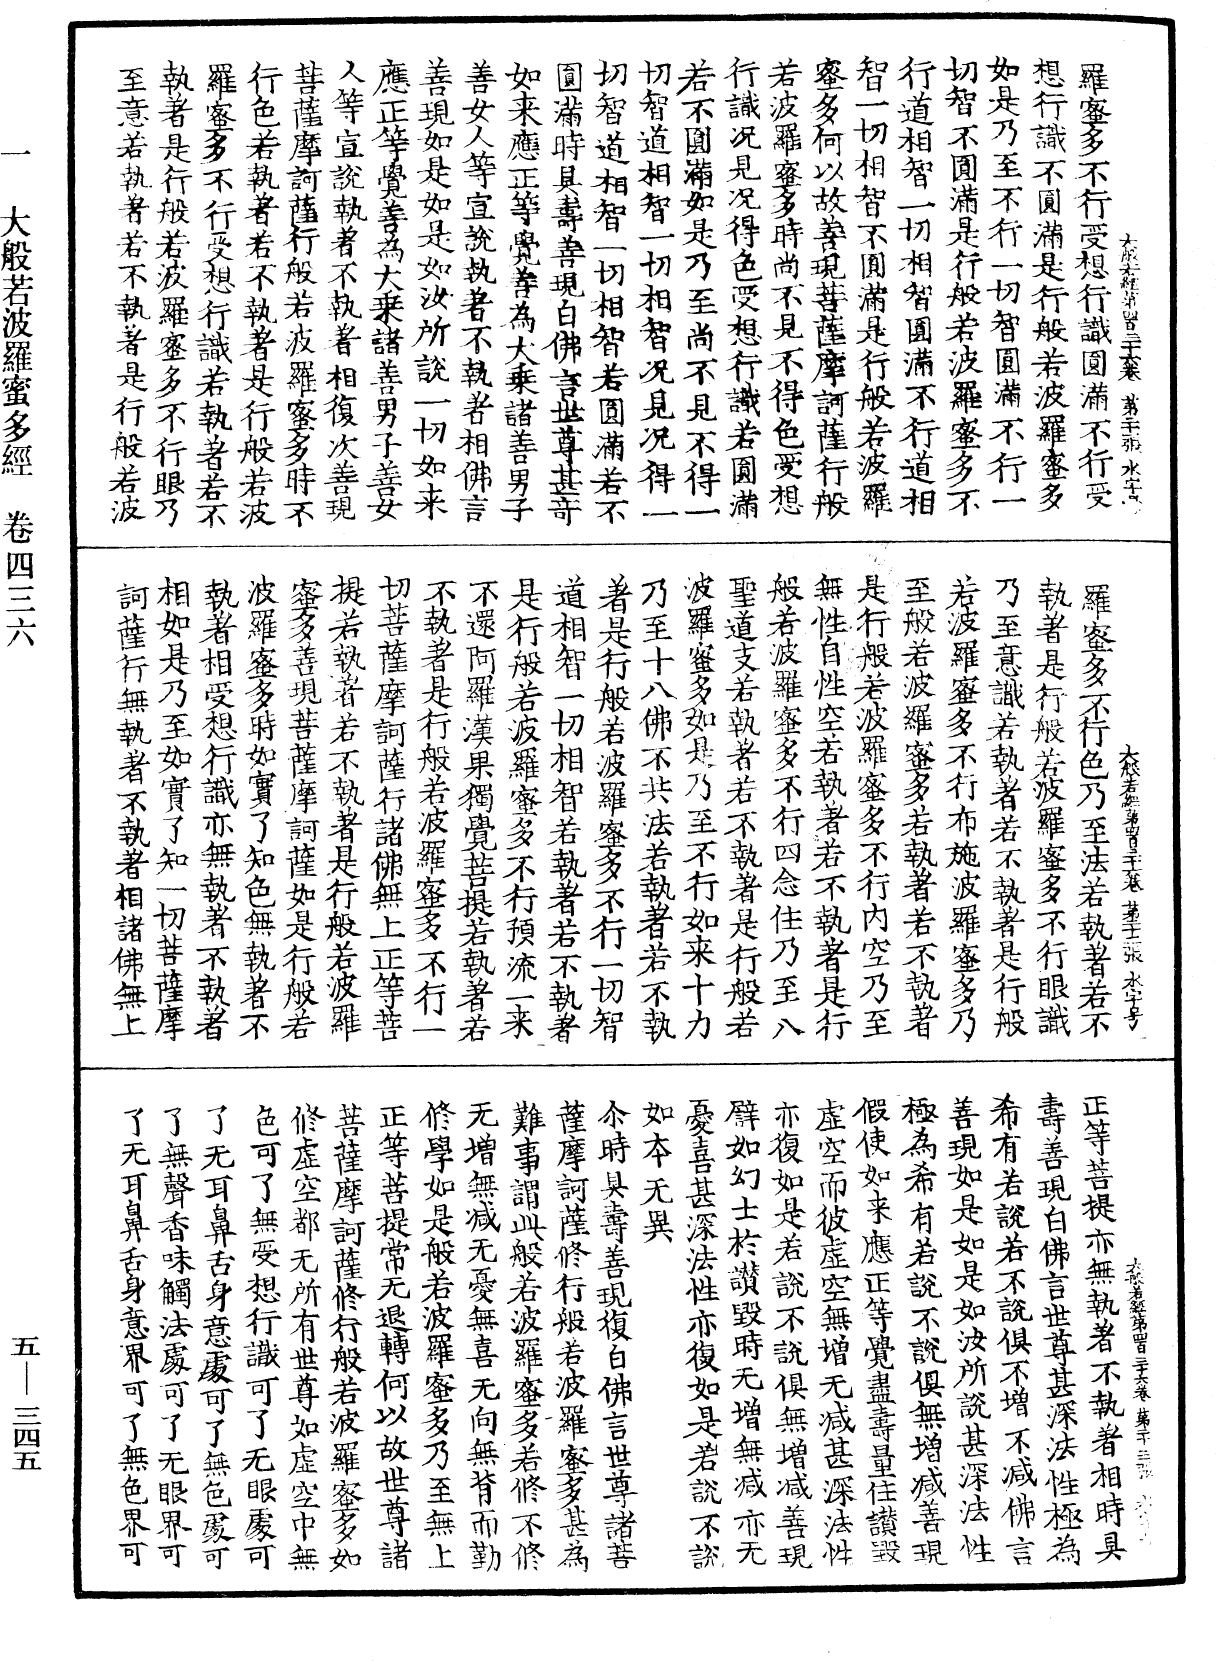 大般若經第四百三十六卷 第二十一張 水字号
羅蜜多不行受想行識圓滿不行受
想行識不圓滿是行般若波羅蜜多
如是乃至不行一切智圓滿不行一
切智不圓滿是行般若波羅蜜多不
行道相智一切相智圓滿不行道相
智一切相智不圓滿是行般若波羅
蜜多何以故善現菩薩摩訶薩行般
若波羅蜜多時尚不見不得色受想
行識况見况得色受想行識若圓滿
若不圓滿如是乃至尚不見不得一
切智道相智一切相智况見况得一
切智道相智一切相智若圓滿若不
圓滿時具壽善現白佛言世尊甚奇
如来應正等覺善為大乗諸善男子
善女人等宣說執者不執者相佛言
善現如是如是如汝所說一切如来
應正等覺善為大乗諸善男子善女
人等宣說執者不執者相復次善現
菩薩摩訶薩行般若波羅蜜多時不
行色若執者若不執者是行般若波
羅蜜多不行受想行識若執者若不
執者是行般若波羅蜜多不行眼乃
至意若執者若不執者是行般若波
大般若經第四百三十六卷 第二十二張 水字号
羅蜜多不行色乃至法若執者若不
執者是行般若波羅蜜多不行眼識
乃至意識若執者若不執者是行般
若波羅蜜多不行布施波羅蜜多乃
至般若波羅蜜多若執者若不執者
是行般若波羅蜜多不行内空乃至
無性自性空若執者若不執者是行
般若波羅蜜多不行四念住乃至八
聖道支若執者若不執者是行般若
波羅蜜多如是乃至不行如来十力
乃至十八佛不共法若執者若不執
者是行般若波羅蜜多不行一切智
道相智一切相智若執者若不執者
是行般若波羅蜜多不行預流一来
不還阿羅漢果獨覺菩提若執者若
不執者是行般若波羅蜜多不行一
切菩薩摩訶薩行諸佛無上正等菩
提若執者若不執者是行般若波羅
蜜多善現菩薩摩訶薩如是行般若
波羅蜜多時如實了知色無執者不
執者相受想行識亦無執者不執者
相如是乃至如實了知一切菩薩摩
訶薩行無執者不執者相諸佛無上
大般若經第四百三十六卷 第二十三張
正等菩提亦無執者不執者相時具
壽善現白佛言世尊甚深法性極為
希有若說若不說俱不增不减佛言
善現如是如是如汝所說甚深法性
極為希有若說不說俱無增减善現
假使如来應正等覺盡壽量住讃毀
虚空而彼虚空無增无减甚深法性
亦復如是若說不說俱無增减善現
譬如幻士於讃毀時无增無减亦无
憂喜甚深法性亦復如是若說不說
如本无異
尒時具壽善現復白佛言世尊諸菩
薩摩訶薩修行般若波羅蜜多甚為
難事謂此般若波羅蜜多若修不修
无增無减无憂無喜无向無背而勤
修學如是般若波羅蜜多乃至無上
正等菩提常无退轉何以故世尊諸
菩薩摩訶薩修行般若波羅蜜多如
修虚空都无所有世尊如虚空中無
色可了無受想行識可了无眼處可
了无耳鼻舌身意處可了無色處可
了無聲香味觸法處可了无眼界可
了无耳鼻舌身意界可了無色界可
一 大般若波羅蜜多經 卷四三六
五—三四五